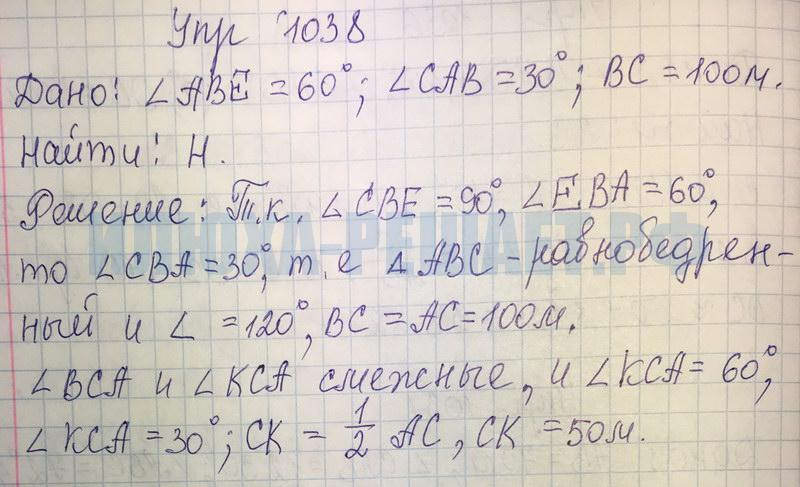 Упр 1038
Дано: ∠ABE = 60°; ∠CAB = 30°; BC = 100м.
Найти: H.
Решение: Т.к. ∠CBE = 90°, ∠EBA = 60°,
то ∠CBA = 30°, т.е ΔABC - равнобедрен-
ный и ∠ = 120°, BC = AC = 100м.
∠BCA и ∠KCA смежные, и ∠KCA = 60°,
∠KCA = 30°; CK = 1/2 AC, CK = 50м.